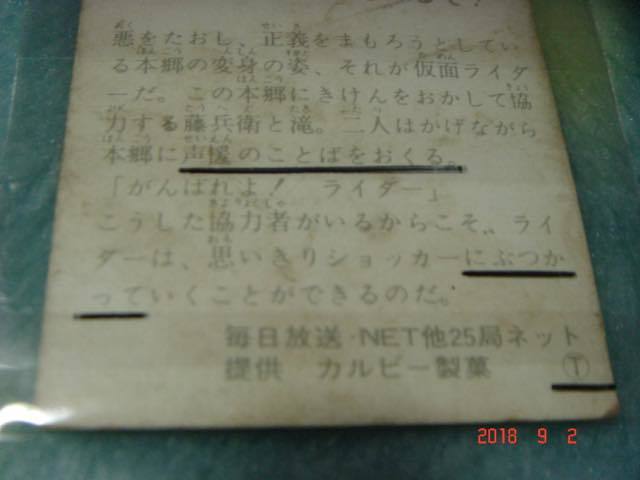 悪をたおし、正義をまもろうとしてい
る本郷の変身の姿、それが仮面ライダ
ーだ。この本郷にきけんをおかして協
力する藤兵衛と滝。二人はかげながら
本郷に声援のことばをおくる。
「がんばれよ！　ライダー」
こうした協力者がいるからこそ、ライ
ダーは、思いきりショッカーにぶつか
っていくことができるのだ。
毎日放送・NET他25局ネット
提供　カルビー製菓　Ⓣ
2018 9 2